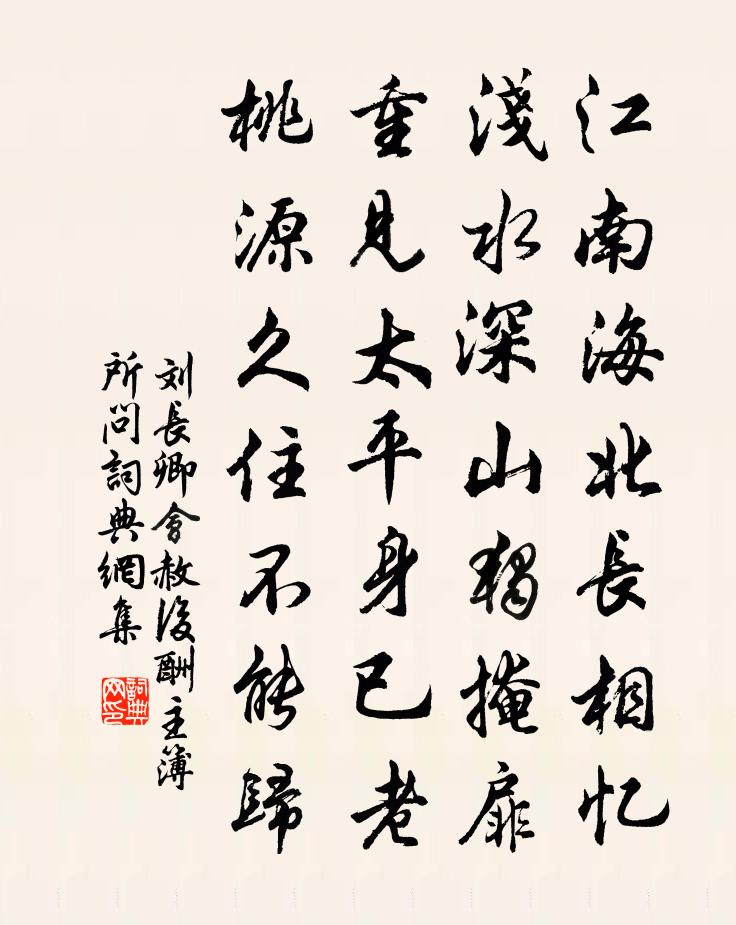 江南海北長相忆
淺水深山獨掩扉
重見太平身已老
桃源久住不能歸
刘長卿會赦後酬主簿
所問詞典網集
詞典网印